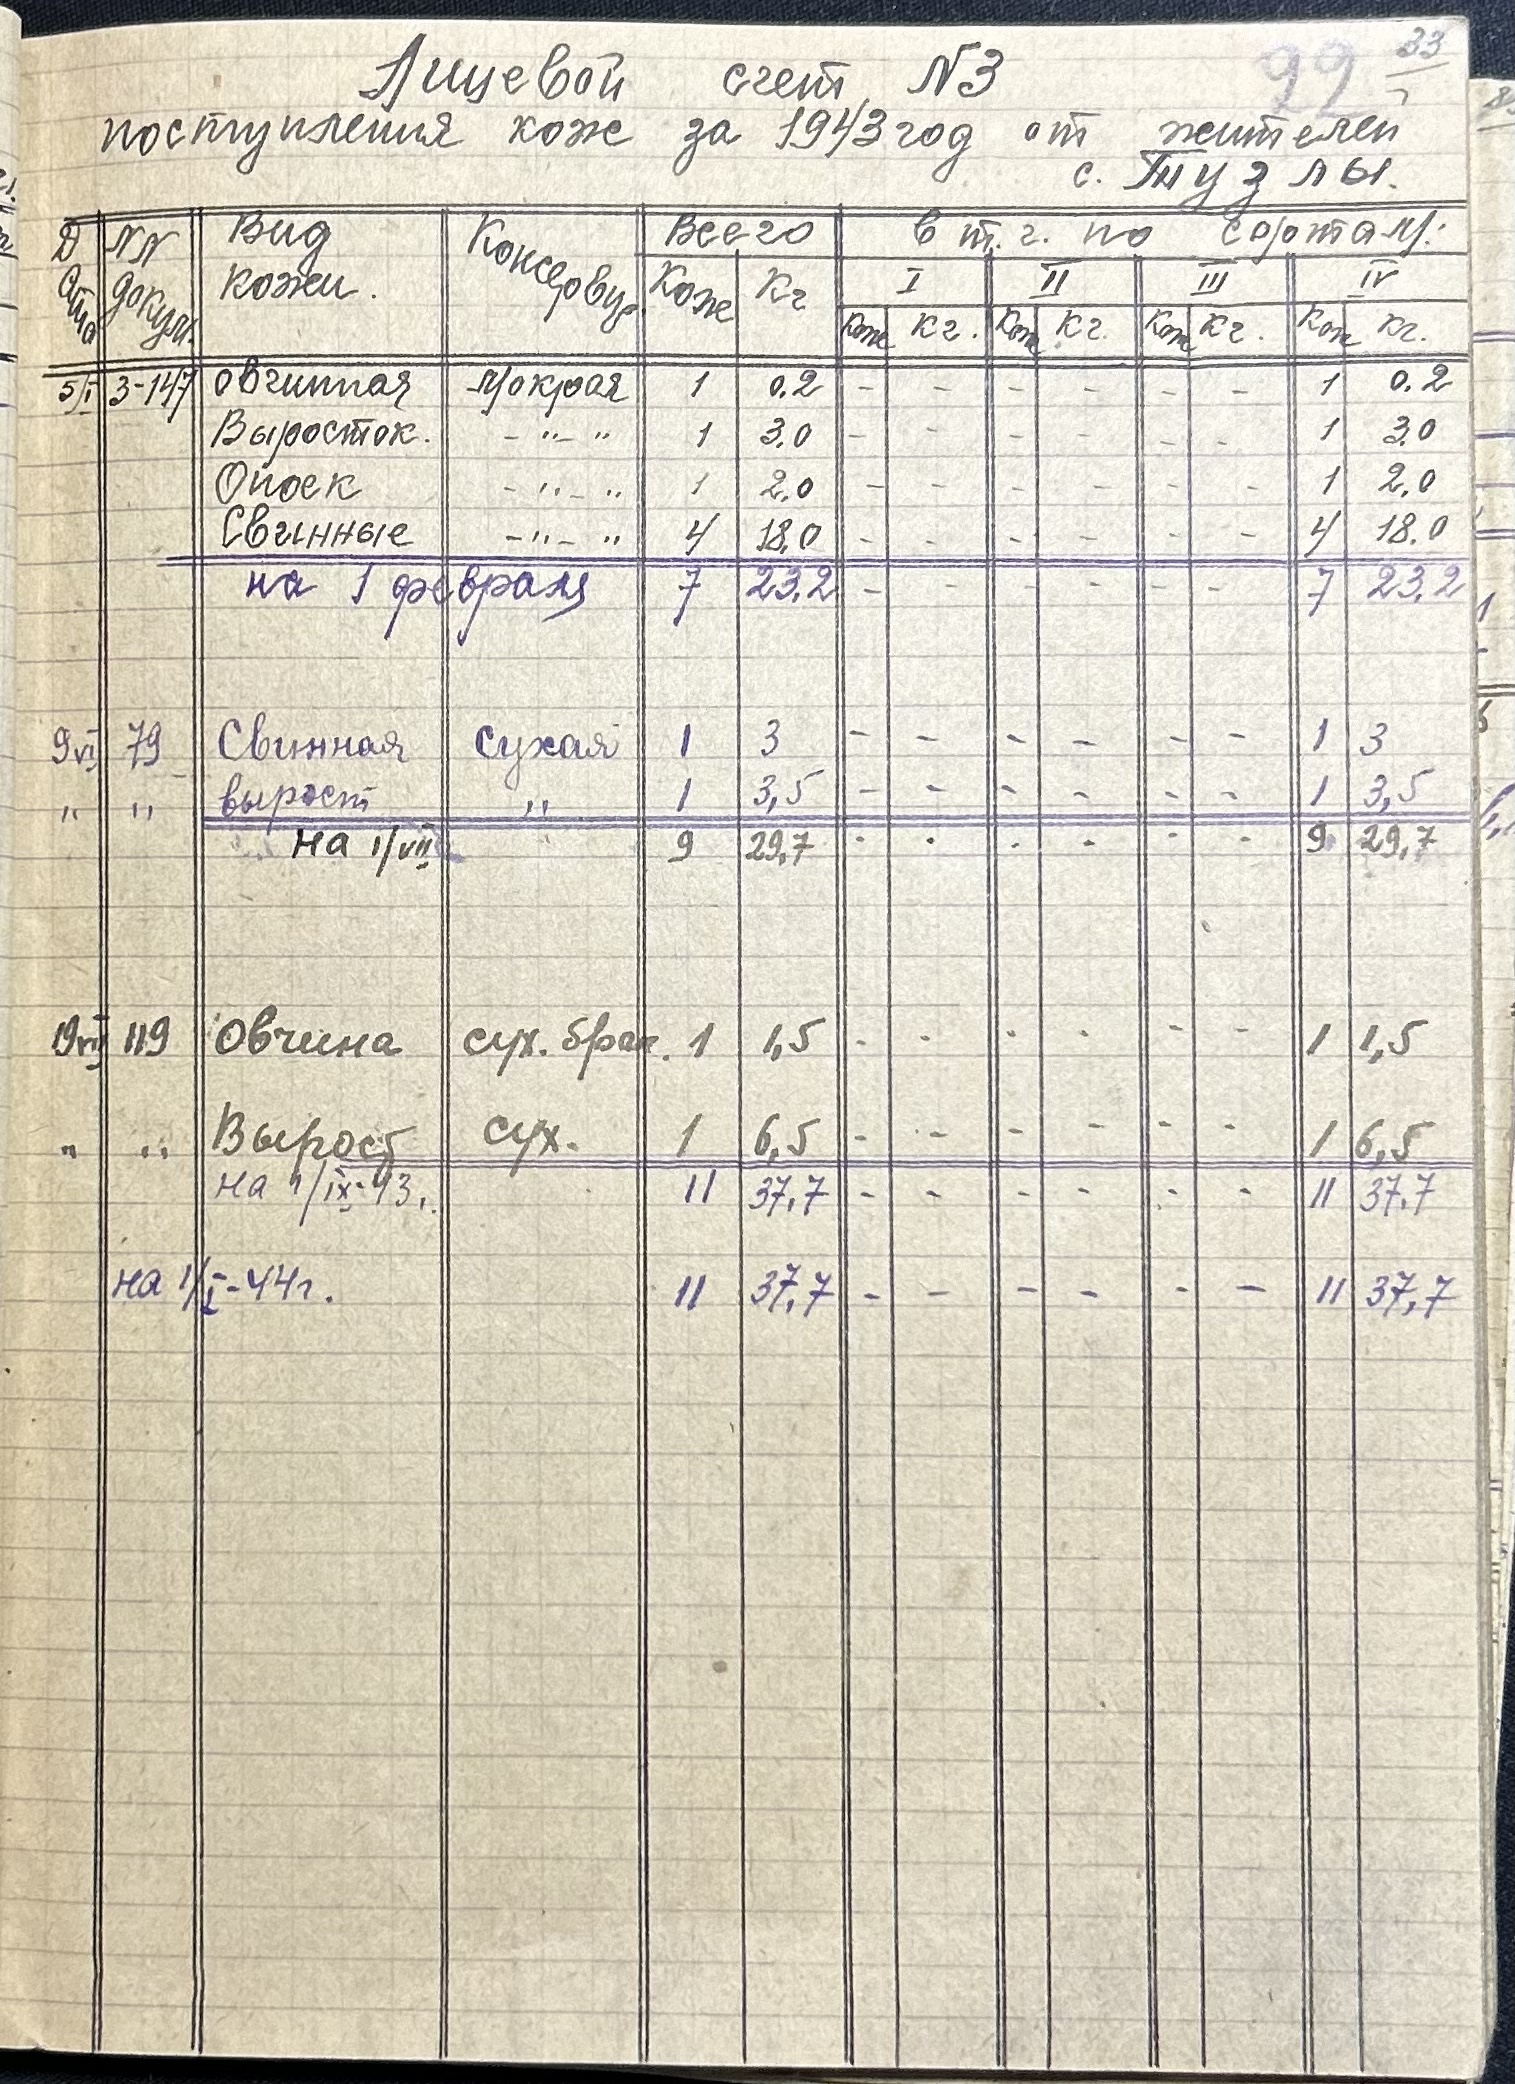 33
99
Лицевой счет N3
поступления кож за 1943 год от жителей
с. Тузлы.
Дата NN докум. Вид кожи. Консервир. Всего в т.ч. по сортам:
Кож Кг I II III IV
Кож кг. Кож кг. Кож кг. Кож кг.
5/I 3-147 Овчинная мокрая 1 0.2 - - - - - - 1 0.2
Выросток. - " - " 1 3.0 - - - - - - 1 3.0
Опоек - " - " 1 2.0 - - - - - - 1 2.0
Свинные - " - " 4 18.0 - - - - - - 4 18.0
на 1 февраля 7 23.2 - - - - - - 7 23.2
9/VI 79 Свинная сухая 1 3 - - - - - - 1 3
" " вырост " 1 3,5 - - - - - - 1 3,5
на 1/VII 9 29,7 - - - - - - 9 29,7
19/VII 119 Овчина сух. брак. 1 1,5 - - - - - - 1 1,5
" " Вырост сух. 1 6,5 - - - - - - 1 6,5
на 1/IX-43г. 11 37,7 - - - - - - 11 37,7
на 1/I-44г. 11 37,7 - - - - - - 11 37,7